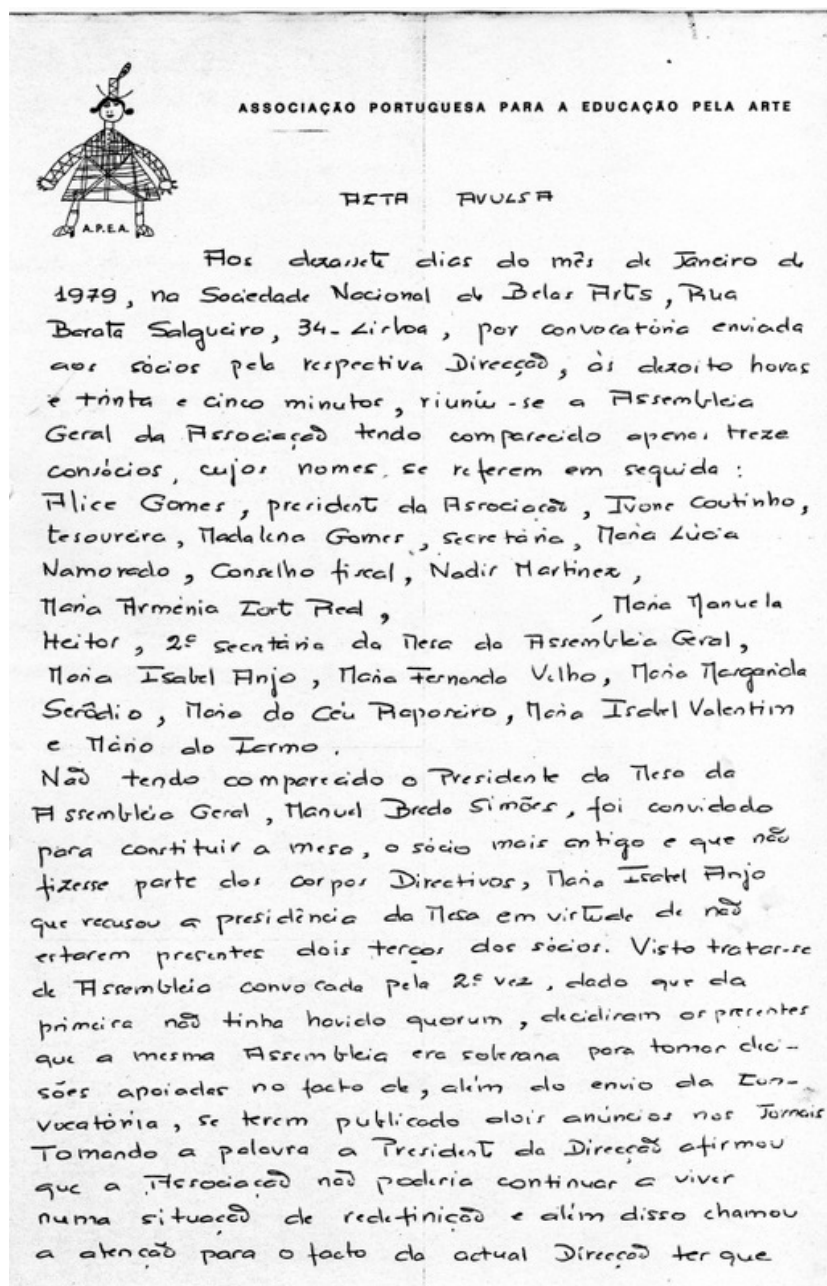 ASSOCIAÇÃO PORTUGUESA PARA A EDUCAÇÃO PELA ARTE
A.P.E.A.
ACTA AVULSA
Aos dezassete dias do mês de Janeiro de
1979, na Sociedade Nacional de Belas Arts, Rua
Barata Salgueiro, 34-Lisboa, por convocatória enviada
aos sócios pela respectiva Direcção, às dezoito horas
e trinta e cinco minutos, riuniu-se a Assembleia
Geral da Associação tendo comparecido apenas treze
consócios, cujos nomes se referem em seguida:
Alice Gomes, president da Associação, Ivone Coutinho,
tesoureira, Madalena Gomes, secretária, Maria Lúcia
Namorado, Conselho fiscal, Nadir Martinez,
Maria Arménia Real, , Maria Manuela
Heitor, 2ª secretária da Mesa da Assembleia Geral,
Maria Isabel Anjo, Maria Fernanda Velho, Maria Margarida
Serôdio, Maria do Céu Raposeiro, Maria Isabel Valentim
e Mário do Carmo.
Não tendo comparecido o Presidente da Mesa da
Assembleia Geral, Manuel Breda Simões, foi convidado
para constituir a mesa, o sócio mais antigo e que não
fizesse parte dos corpos Directivos, Maria Isabel Anjo
que recusou a presidência da Mesa em virtude de não
estarem presentes dois terços dos sócios. Visto tratar-se
de Assembleia convocada pela 2ª vez, dado que da
primeira não tinha havido quorum, decidiram os presentes
que a mesma Assembleia era soberana para tomar deci-
sões apoiadas no facto de, além do envio da Con-
vocatória, se terem publicado dois anúncios nos Jornais
Tomando a palavra a President da Direcção afirmou
que a Associação não poderia continuar a viver
numa situação de redefinição e além disso chamou
a atenção para o facto da actual Direcção ter que